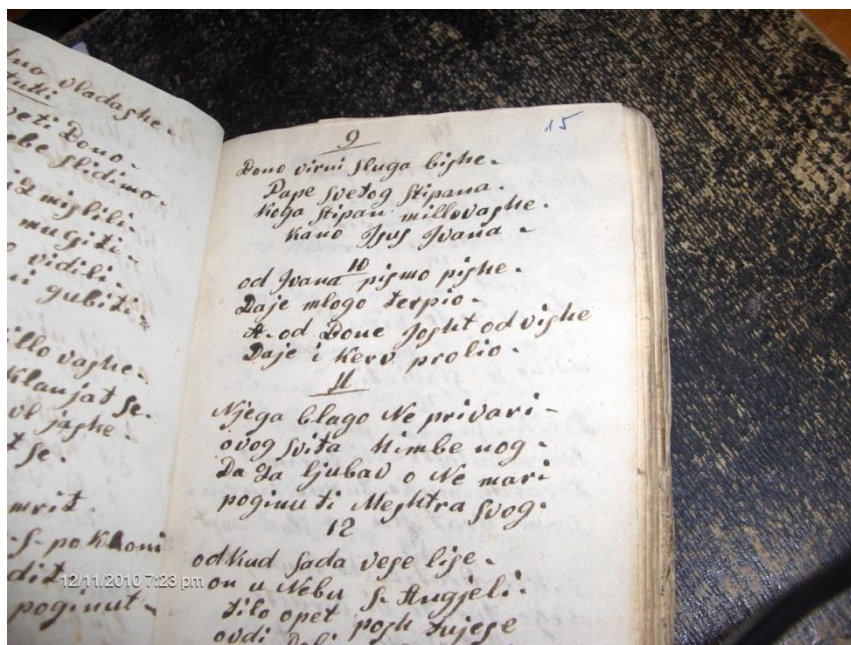 vladashe.
sveti Dono.
slidimo.
mislili.
muçiti.
vidili.
gubiti.
vashe.
Klanjat se.
jashe.
t se.
mrit.
po Kloni
poginut.
15
9
Dono virni sluga bishe.
Pape svetog Stipana.
Koga Stipan millovashe.
Kano Isus Ivana.
10
od Ivana pismo pishe.
Daje mlogo terpio.
A. od Done Josht od vishe
Daje i Kerv prolio.
11
Njega blago Ne privari.
ovog svita Himbe nog.
Da Za ljubav o Ne mari
poginu ti Meshtra svog.
12
odkud sada vese lise.
on u Nebu s. Angjeli.
tilo opet posh tujese
ovdi
12/11/2010 7:23 pm